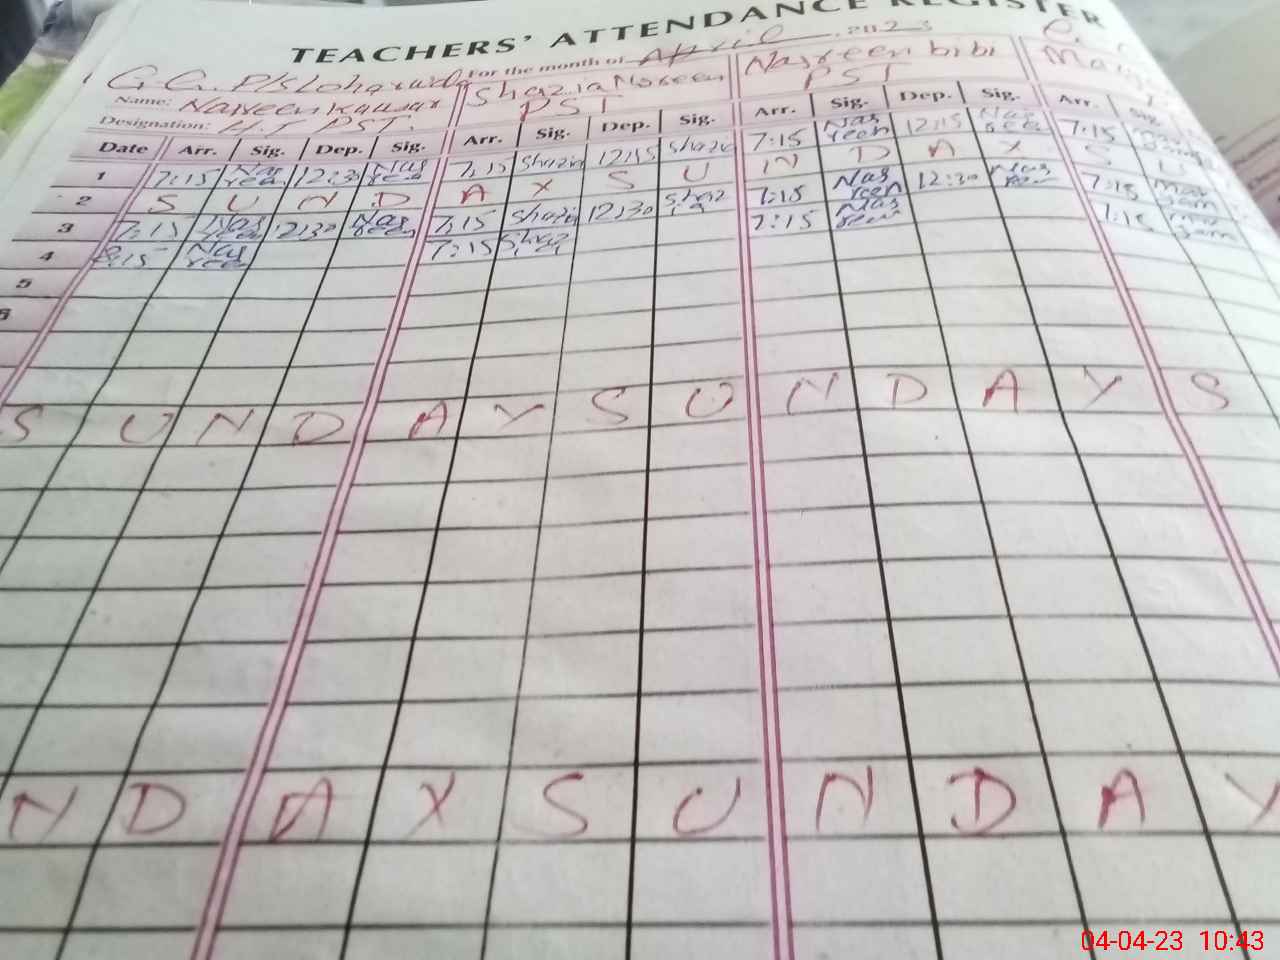 TEACHERS' ATTENDANCE REGISTER
For the month of April 2023
Name: Nasreen Kausar Shazia Noreen Nasreen bibi
Designation: H.T PST. PST PST
Date Arr. Sig. Dep. Sig. Arr. Sig. Dep. Sig. Arr. Sig. Dep. Sig. Arr. Sig.
1 7:15 Nasreen 12:30 Nasreen 7:15 Shazia 12:15 Shazia 7:15 Nasreen 12:15 Nasreen 7:15
2 S U N D A Y S U N D A Y S U
3 7:15 Nasreen 12:30 Nasreen 7:15 Shazia 12:30 Shazia 7:15 Nasreen 12:30 Nasreen 7:15 Maryam
4 8:15 Nasreen 7:15 Shazia 7:15 Nasreen 7:15 Maryam
5
6
S U N D A Y S U N D A Y S
N D A Y S U N D A Y
04-04-23 10:43